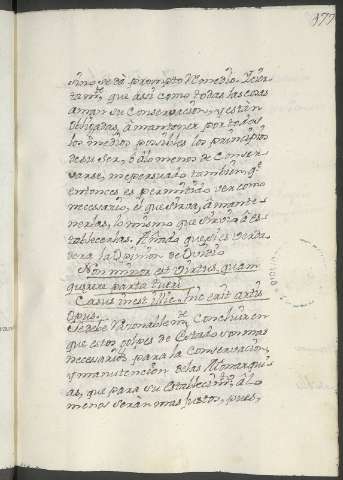 177
sino se dà prompto Remedio, Cier-
tamte. que àsi como todas las cosas
aman su Conservacion, y estàn
obligadas, à mantener por todos
los medios posibles los principios
de su ser, ò àlo menos de Conser-
varse, me persuado tambien, qe.
entonces es permitido, ver como
necesario, el que sirva, à mante-
nerlas, lo mismo que sirviò à es-
tablecerlas. Añada que si es verda-
dera la Opinion de Ovidio
Non minor est virtus, quam
quærere parta tueri
Casus inest illic, hic erit artis
Opus.
Se debe razonablemte. Concluir en
que estos golpes de Estado son mas
necesarios para la Conservacion,
y manutencion de las Monarqui-
as, que para su establecimto. à lo
menos seràn mas justos, pues,